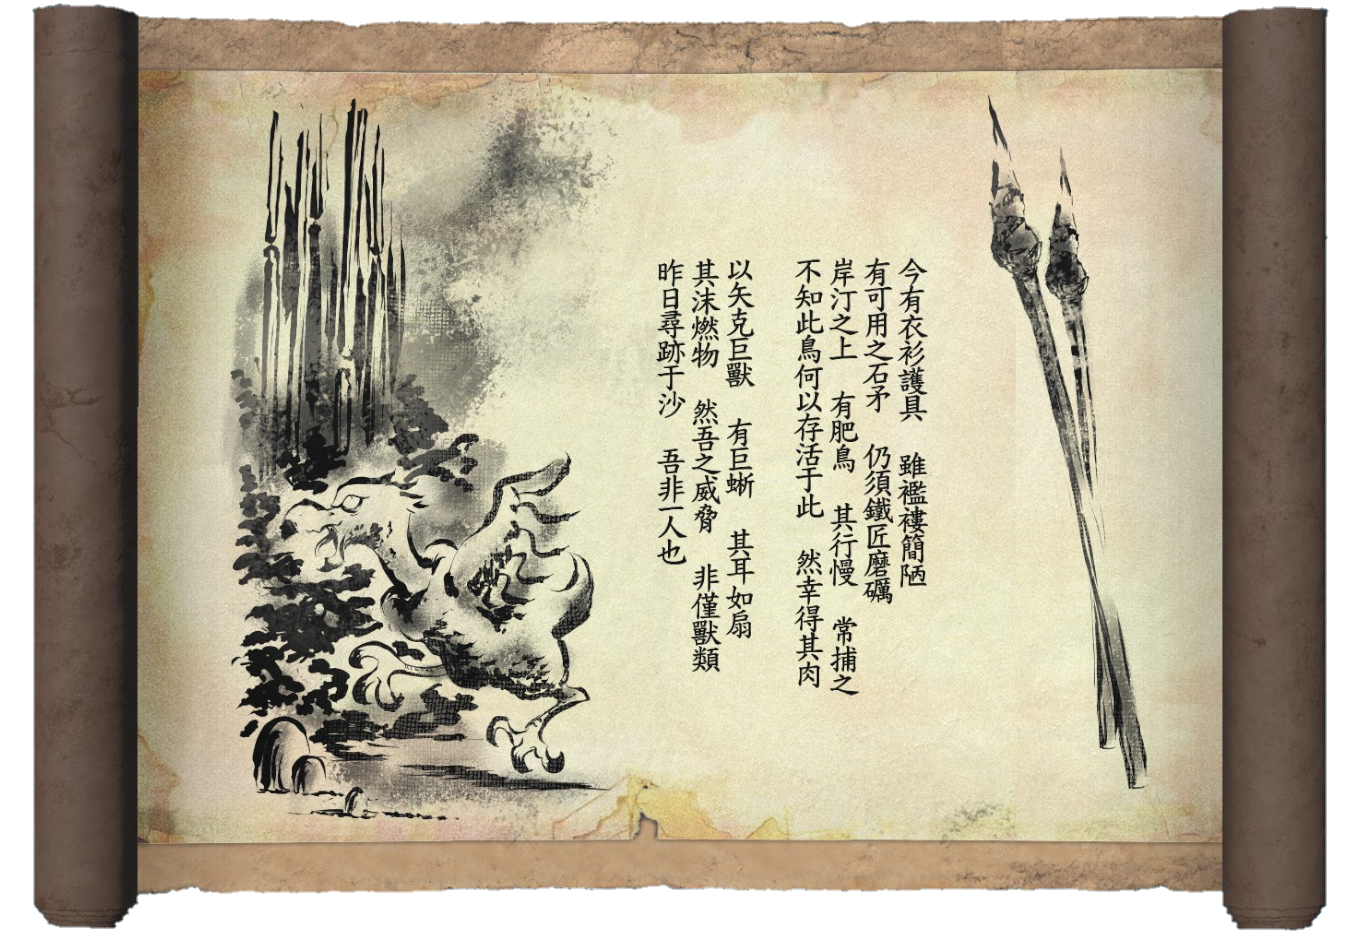 今有衣衫護具　雖襤褸簡陋
有可用之石矛　仍須鐵匠磨礪
岸汀之上　有肥鳥　其行慢　常捕之
不知此鳥何以存活于此　然幸得其肉
以矢克巨獸　有巨蜥　其耳如扇
其沫燃物　然吾之威脅　非僅獸類
昨日尋跡于沙　吾非一人也